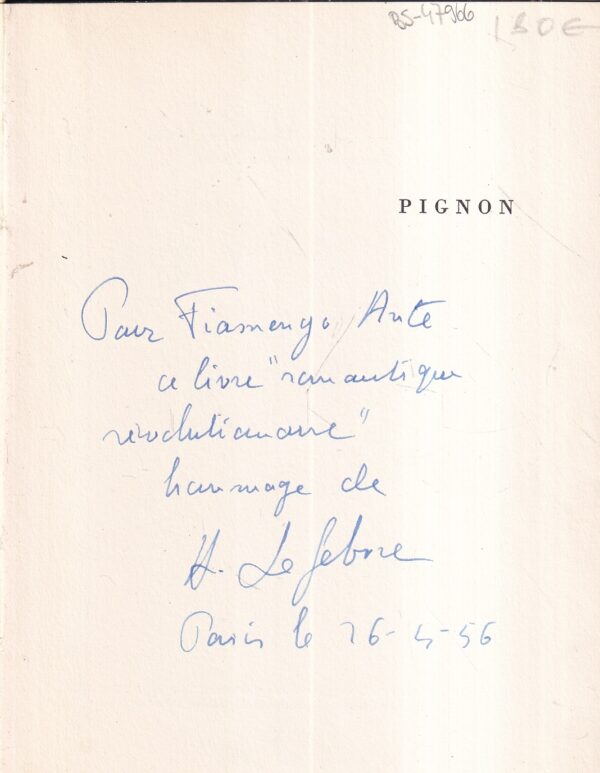 BS-47966
130€
PIGNON
Pour Fiamengo Ante
ce livre "romantique
révolutionnaire"
hommage de
H. Lefebvre
Paris le 26-4-56